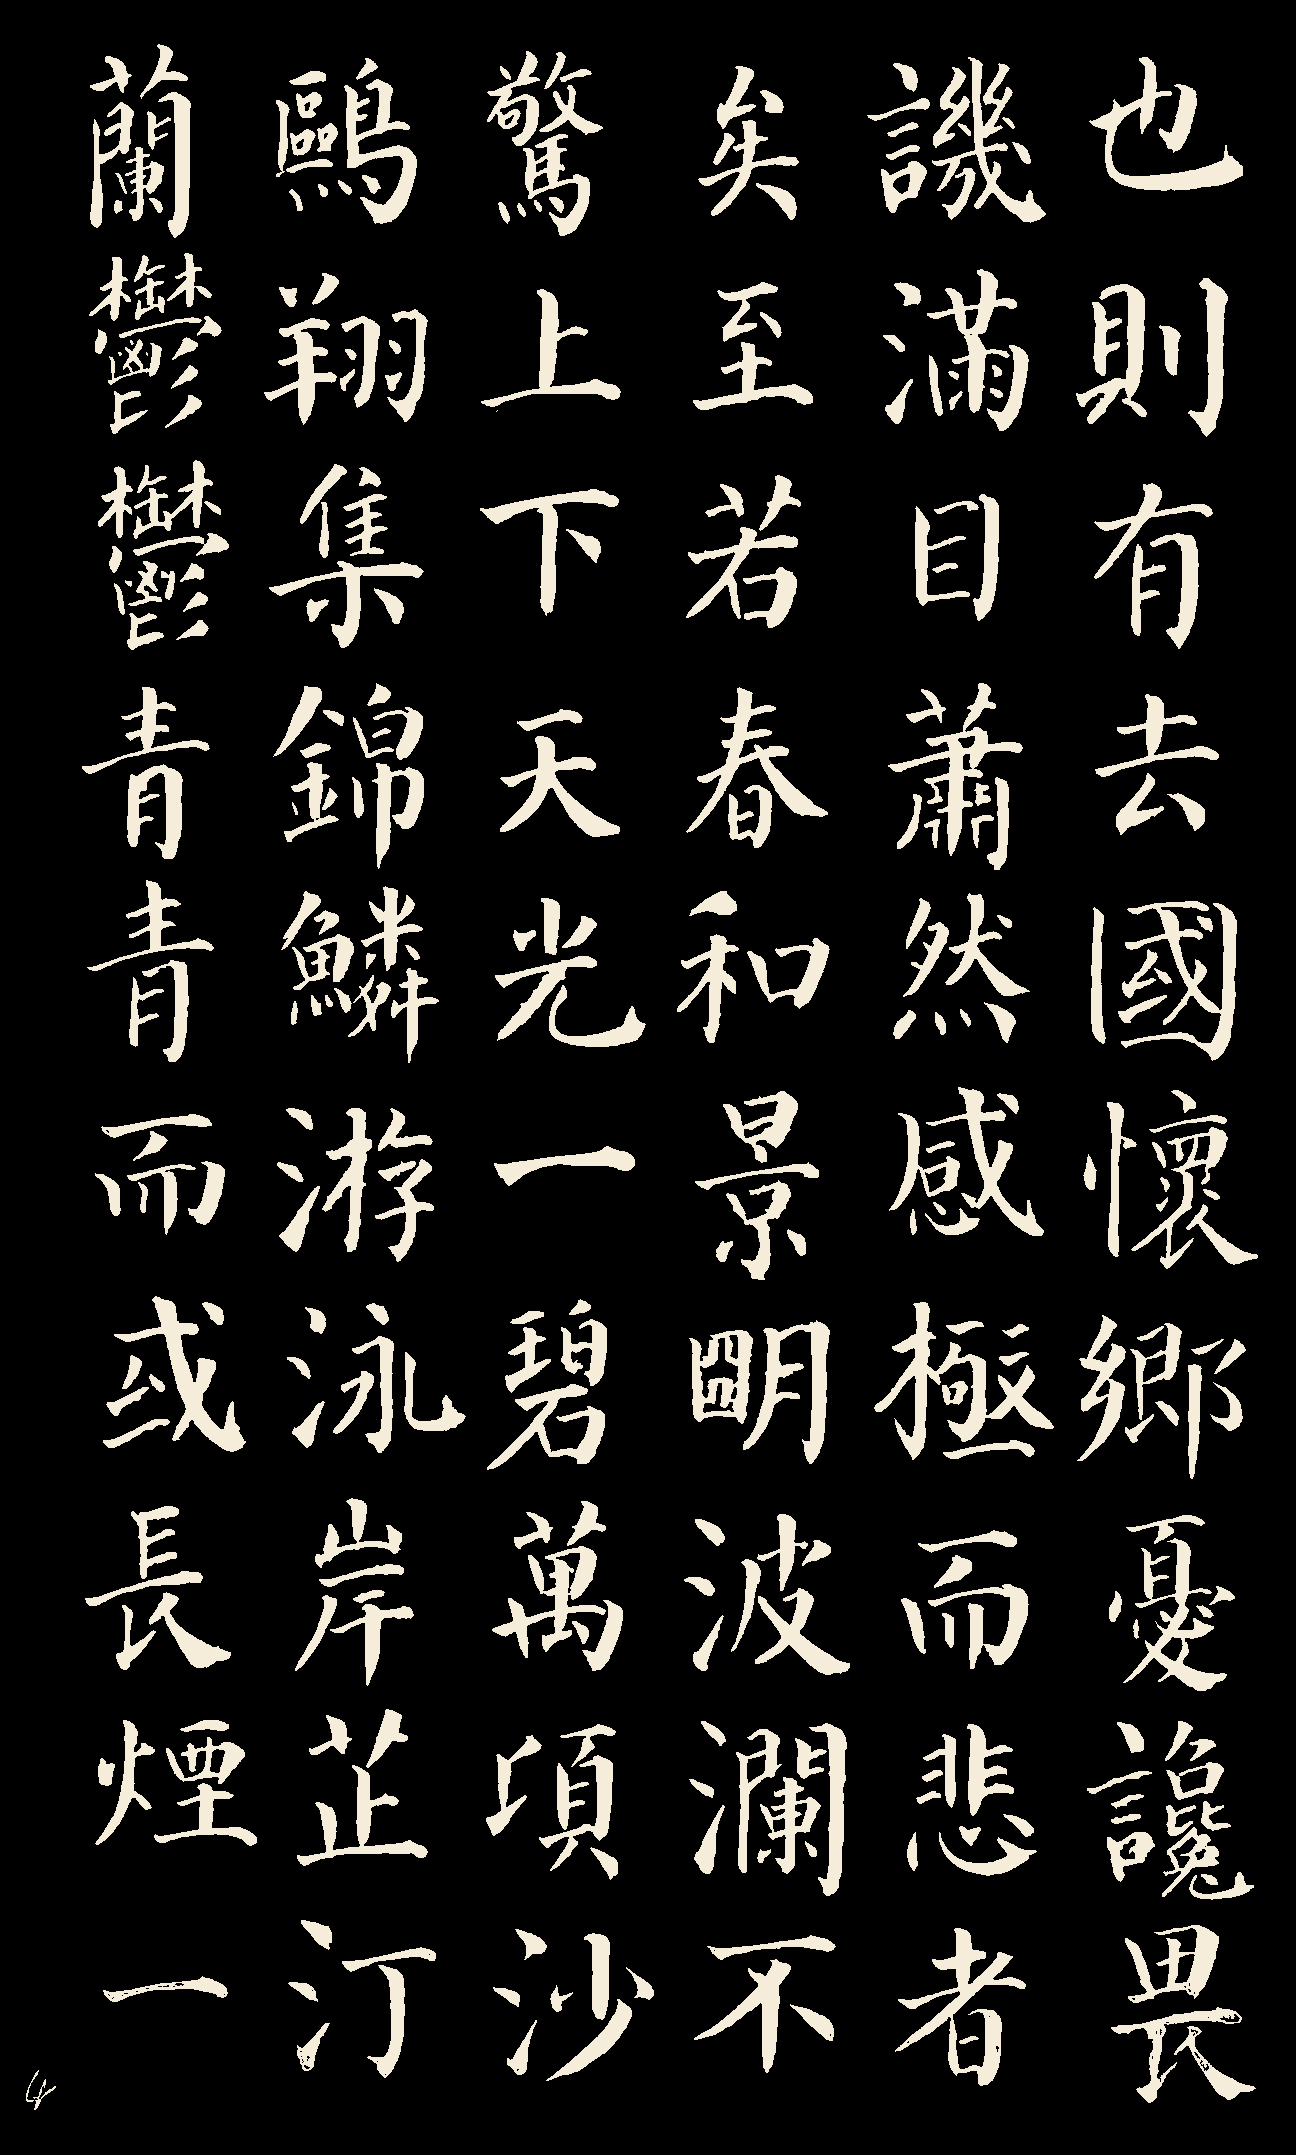 也則有去國懷鄉憂讒畏
譏滿目蕭然感極而悲者
矣至若春和景明波瀾不
驚上下天光一碧萬頃沙
鷗翔集錦鱗游泳岸芷汀
蘭鬱鬱青青而或長煙一